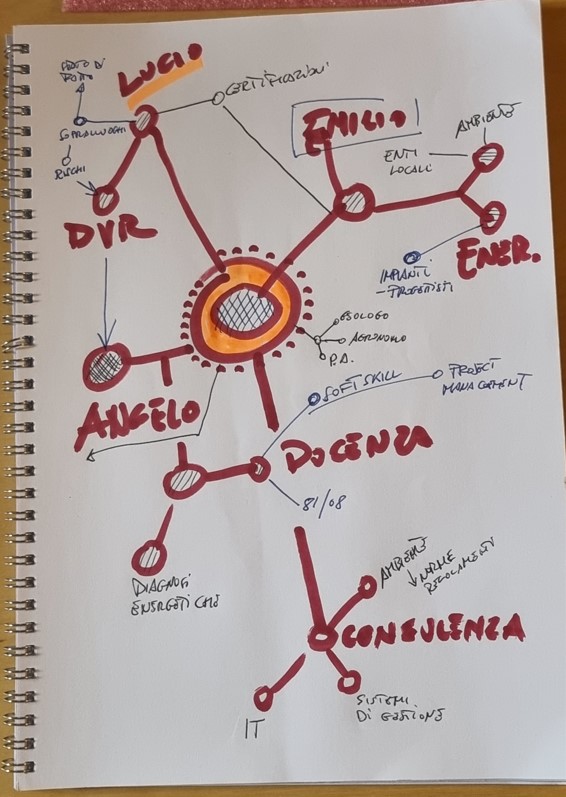 LUCIO
CERTIFICAZIONI
SOPRALLUOGHI
RISCHI
DVR
EMILIO
AMBIENTE
ENTI
LOCALI
ENER.
IMPIANTI
AGRONOMO
P.A.
ANGELO
SOFT SKILL
PROJECT
MANAGEMENT
DOCENZA
81/08
DIAGNOSI
ENERGETICHE
AMBIENTE
NORME
REGOLAMENTI
CONSULENZA
SISTEMI
DI GESTIONE
IT